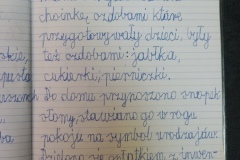 choinkę, ozdobami które
przygotowywały dzieci, były
też ozdobami: jabłka,
cukierki, pierniczki.
Do domu przynoszono snopek
słomy, stawiano go w rogu
pokoju na symbol urodzajów.
Dzielono się opłatkiem z